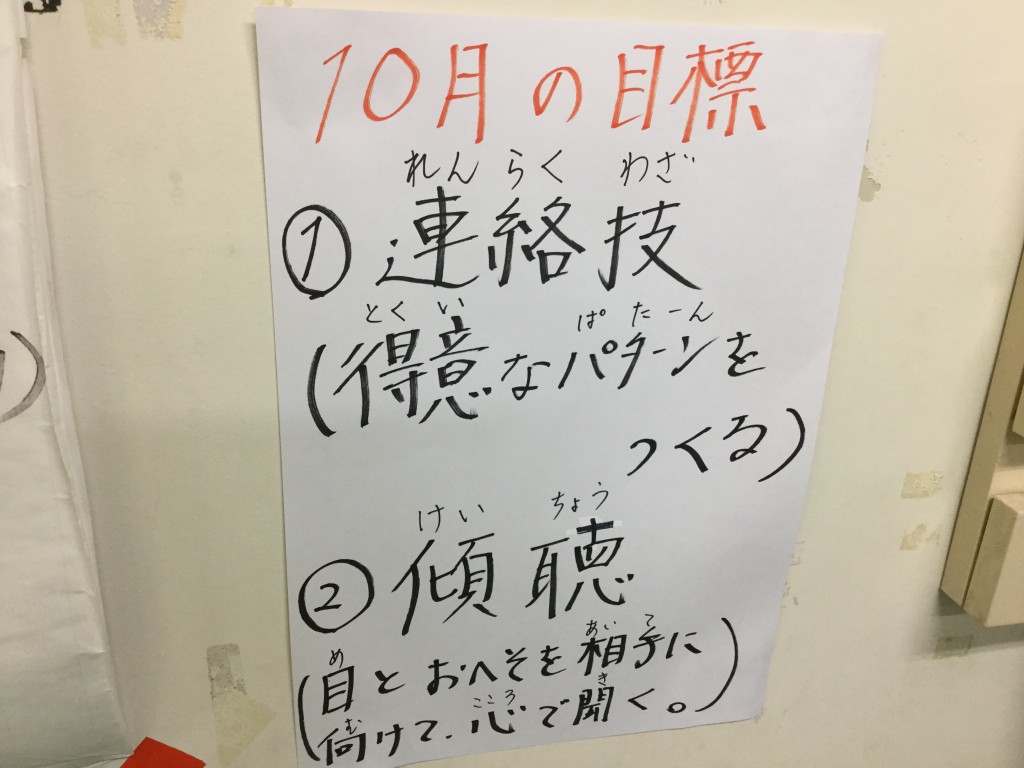 10月の目標
れんらく わざ
① 連絡技
とくい ぱたーん
(得意なパターンを
つくる)
けい ちょう
② 傾聴
め あい て
(目とおへそを相手に
む こころ き
向けて、心で聞く。)